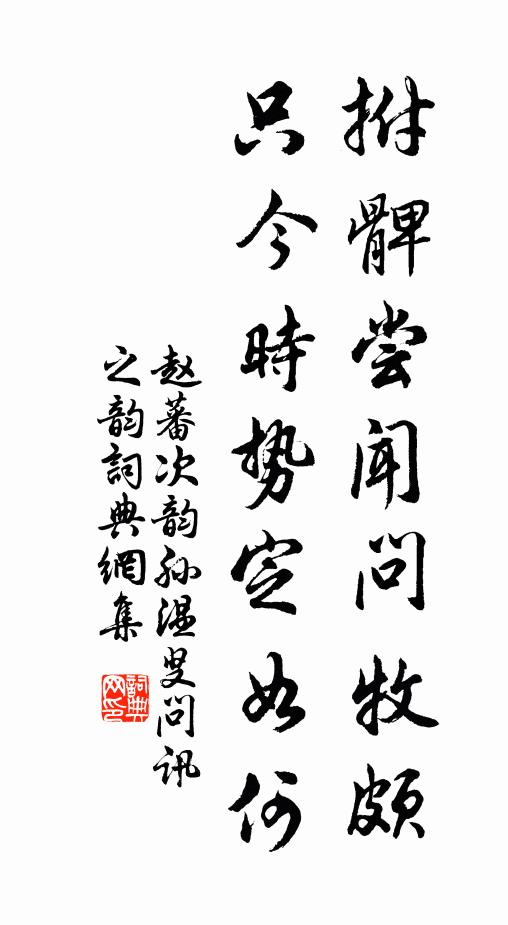 拊髀尝闻问牧颇
只今時势定如何
赵蕃次韵孙温叟问讯
之韵詞典網集
詞典
网印